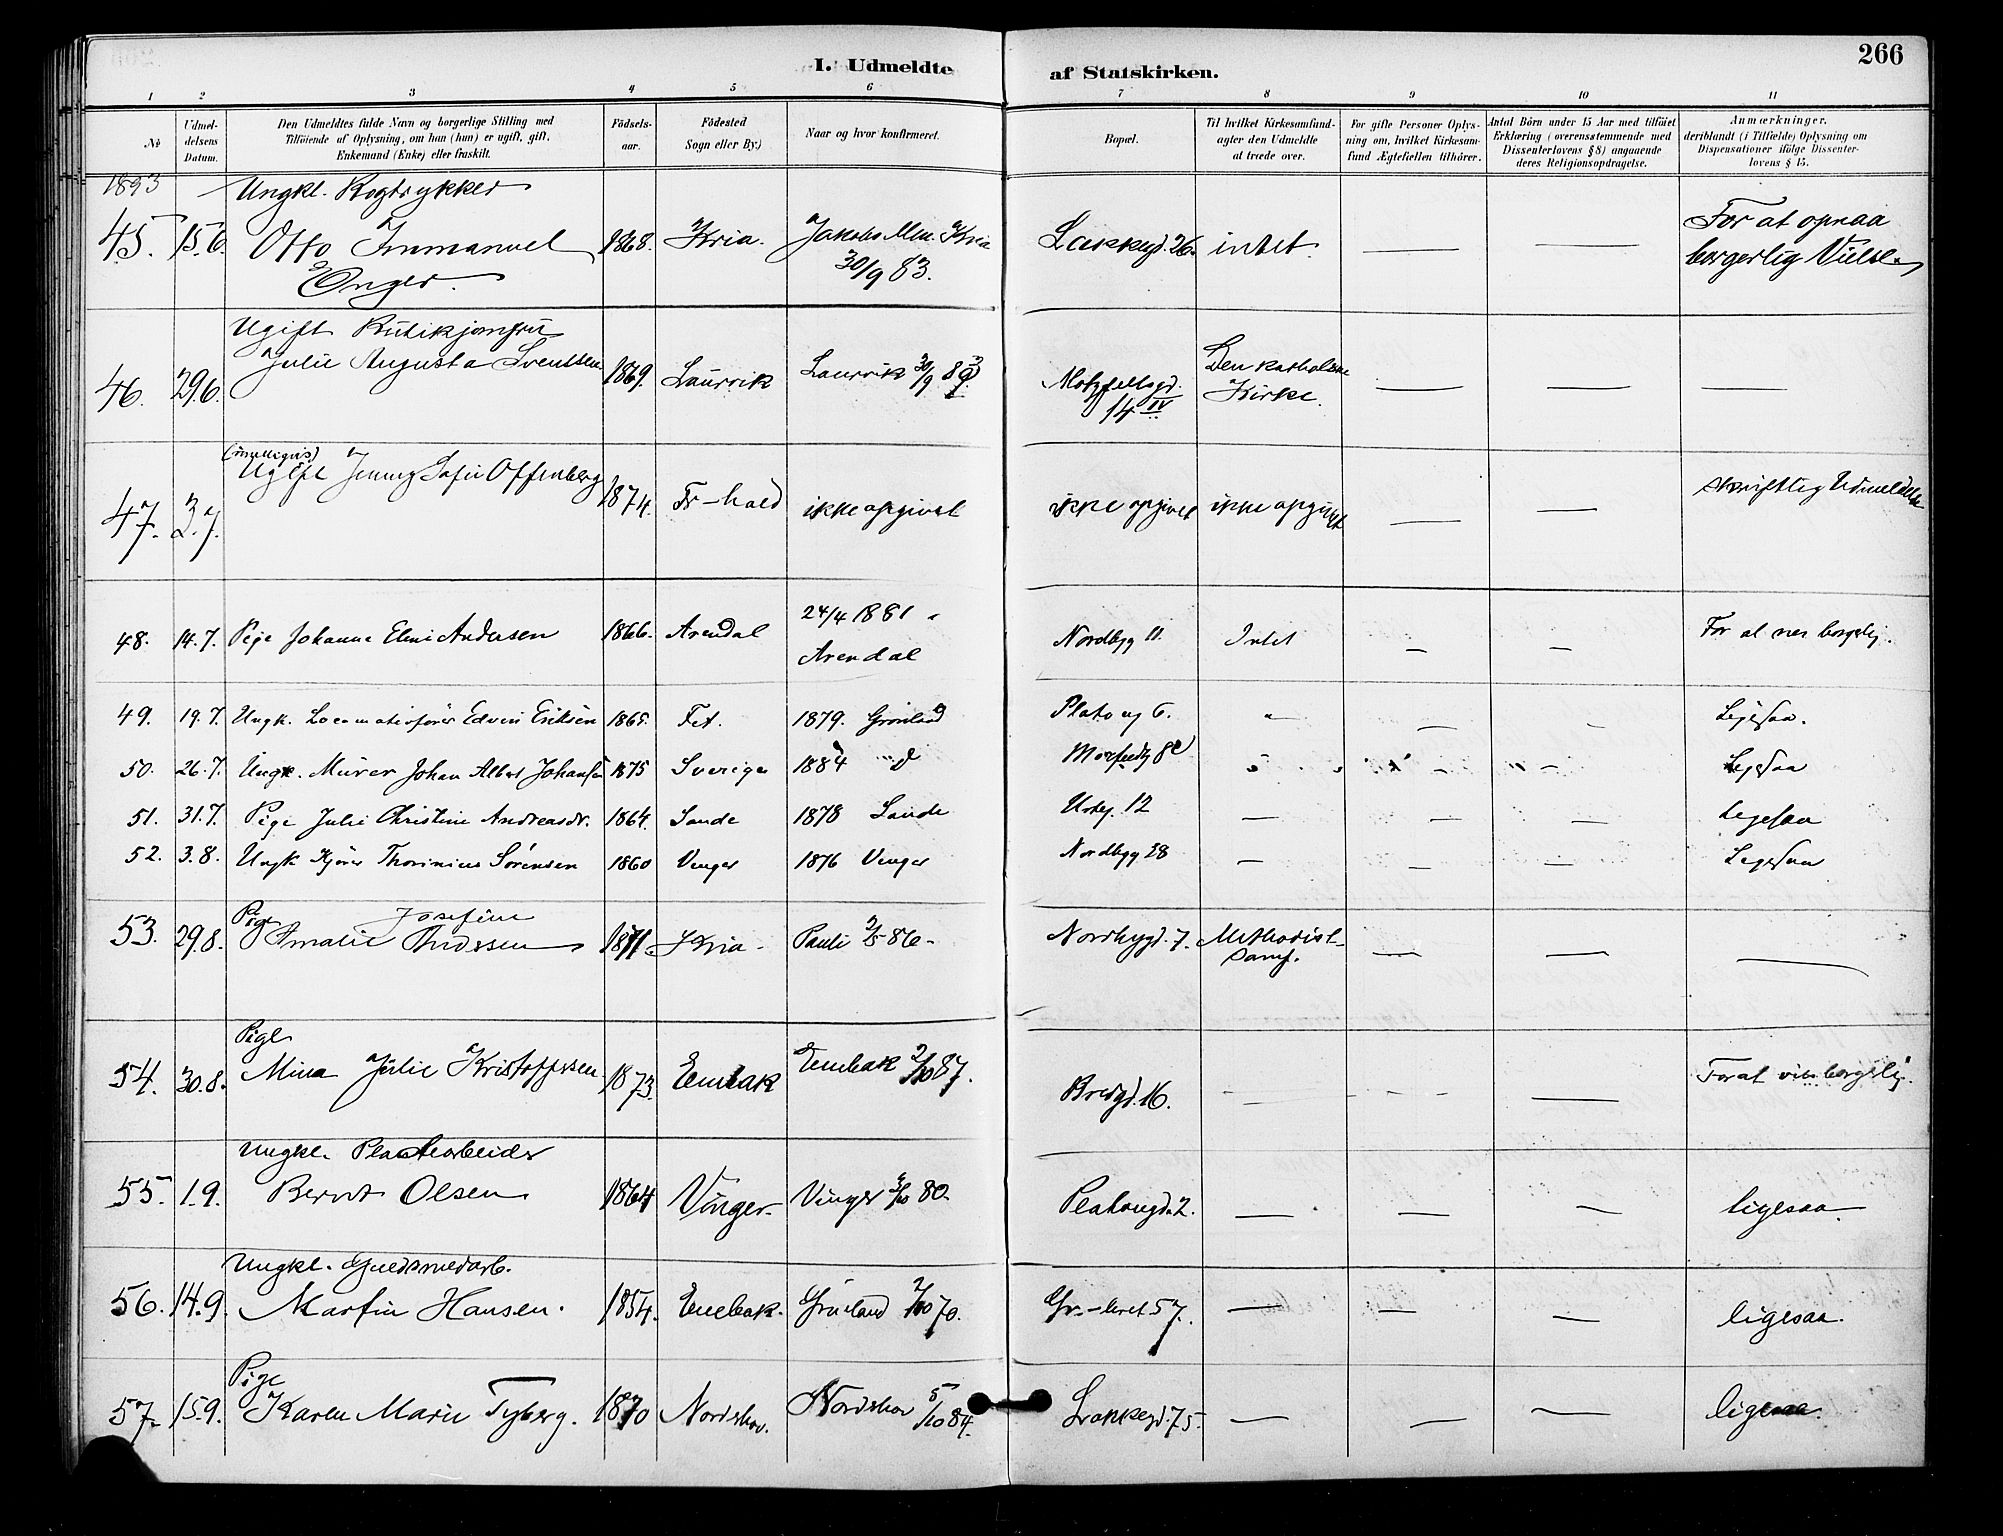 266
I. Udmeldte af Statskirken.
1 2 3 4 5 6 7 8 9 10 11
№
Udmel-
delsens
Datum.
Den Udmeldtes fulde Navn og borgerlige Stilling med
Tilföiende af Oplysning, om han (hun) er ugift, gift,
Enkemand (Enke) eller fraskilt.
Födsels-
aar.
Födested
Sogn eller By.)
Naar og hvor konfirmeret.
Bopæl.
Til hvilket Kirkesamfund-
agter den Udmeldte
at træde over.
For gifte Personer Oplys-
ning om, hvilket Kirkesam-
fund Ægtefællen tilhörer.
Antal Börn under 15 Aar med tilföiet
Erklæring (overensstemmende med
Dissenterlovens § 8) angaaende
deres Religionsopdragelse.
Anmærkninger,
deriblandt (i Tilfælde) Oplysning om
Dispensationer ifölge Dissenter-
lovens § 15.
1893
Ungkl. Bogtrykker
45. 15.6. Otto Immanuel 1868. Kria. Jakobs Mn. Kria Lakkegd. 26. intet. — — For at opnaa
Enger. 30/9 83. borgerlig Vielse
Ugift Butikjomfru
46. 29.6. Julie Augusta Svendsen 1869. Laurvik Laurvik 30/9 83 Motzfeldsgd. Den katholske — — —
14 IV Kirke.
47. 3.7. Ugift Jenny Sofie Offenberg 1874. Fr-hald ikke opgivet ikke opgivet ikke opgivet — — Skriftlig Udmeldelse
48. 14.7. Pige Johanne Eline Andersen 1866. Arendal 24/4 1881 Nordbyg 11. Intet — — For at vies borgelig.
Arendal
49. 19.7. Ungk. Locomotivfører Edvin Eriksen 1865. Fet. 1879. Grønland Platoug 6. " — — Ligesaa.
50. 26.7. Ungk. Murer Johan Albert Johansen 1875 Sverige 1884 — — Ligesaa
51. 31.7. Pige Julie Christine Andreasdr. 1864. Sande 1878 Sande Urteg. 12 — — — Ligesaa
52. 3.8. Ungk Kjører Thorinius Sørensen 1860 Vinger 1876 Vinger Nordbyg 28 — — — Ligesaa
53. 29.8. Pige Amalie Josefine Andersen 1871 Kria. Pauli 2/5 86. Nordbygd. 7. Methodist- — — —
Samf.
Pige
54. 30.8. Mina Julie Kristoffersen 1873. Enebak Enebak 2/10 87. Bredgd. 16. — — — For at vies borgelig.
Ungkl.
55. 1.9. Bernt Olsen 1864 Vinger Vinger 3/10 80. Platougd. 2. — — — ligesaa.
Ungkl. Guldsmedarb.
56. 14.9. Martin Hansen. 1854. Enebak. Grønland 2/10 70. Gr-leret 57. — — — ligesaa.
Pige
57. 15.9. Karen Marie Tyberg. 1870 Nordskov. Nordskov 5/10 84. Lakkegd. 75. — — — ligesaa.